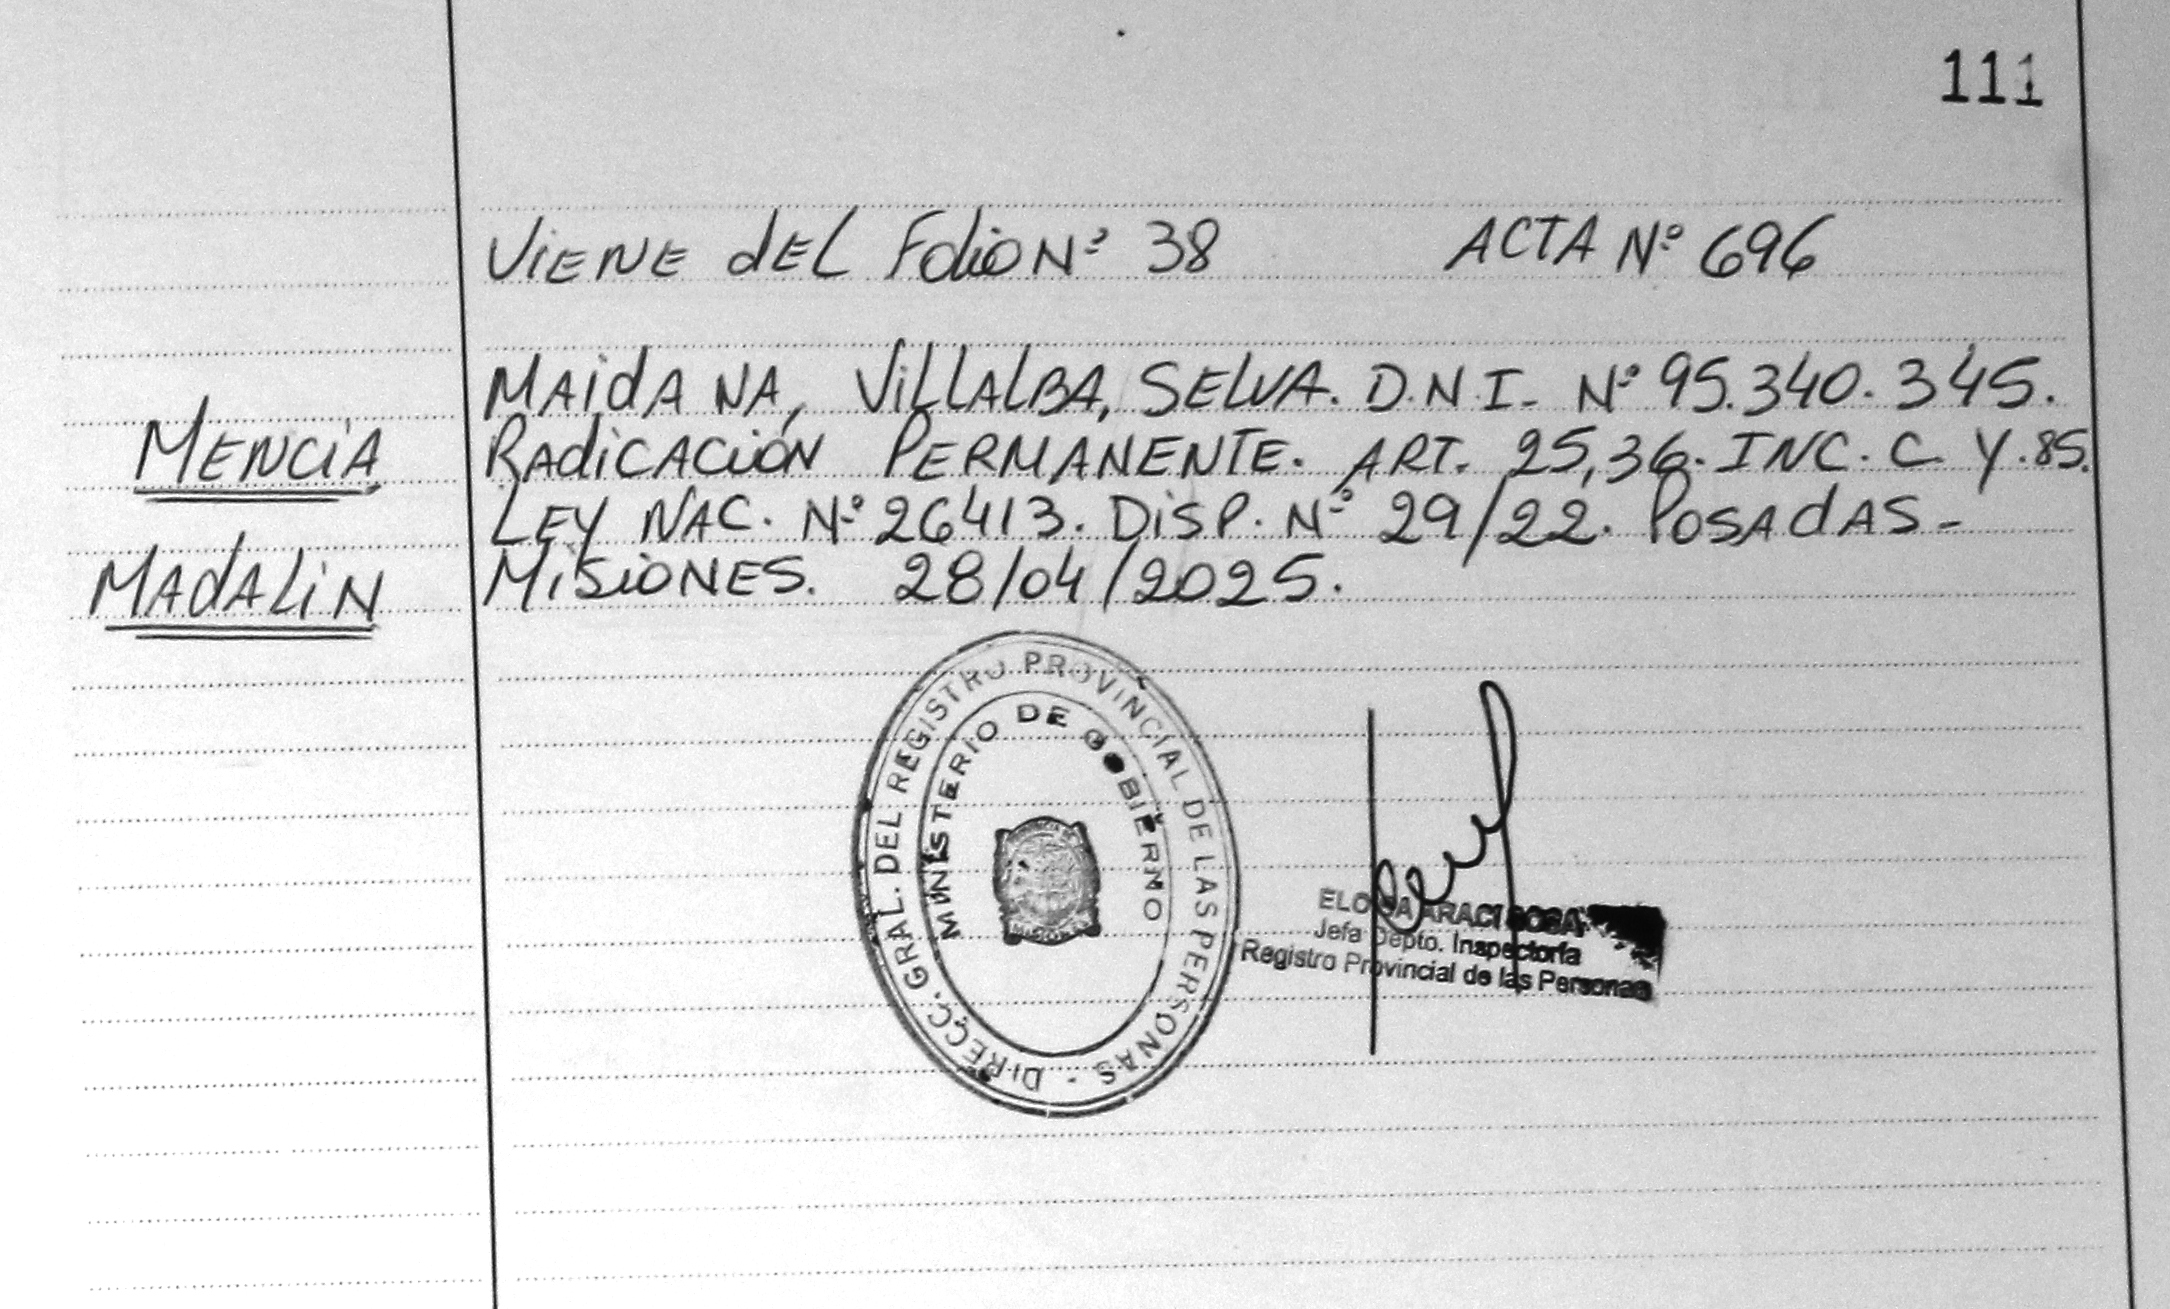 111
ViENE dEL Folio Nº 38 ACTA Nº 696
MAidANA, ViLLALBA, SELVA. D.N.I. Nº 95.340.345.
MENCiA
RAdiCACiÓN PERMANENTE. ART. 25,36. INC. C Y.85.
LEY NAC. Nº 26413. DiSP. Nº 29/22. POSAdAS-
MAdALiN
MiSiONES. 28/04/2025.
DIRECC. GRAL. DEL REGISTRO PROVINCIAL DE LAS PERSONAS -
MINISTERIO DE GOBIERNO
ARACI SOSA
Jefa Depto. Inspectoría
Registro Provincial de las Personas